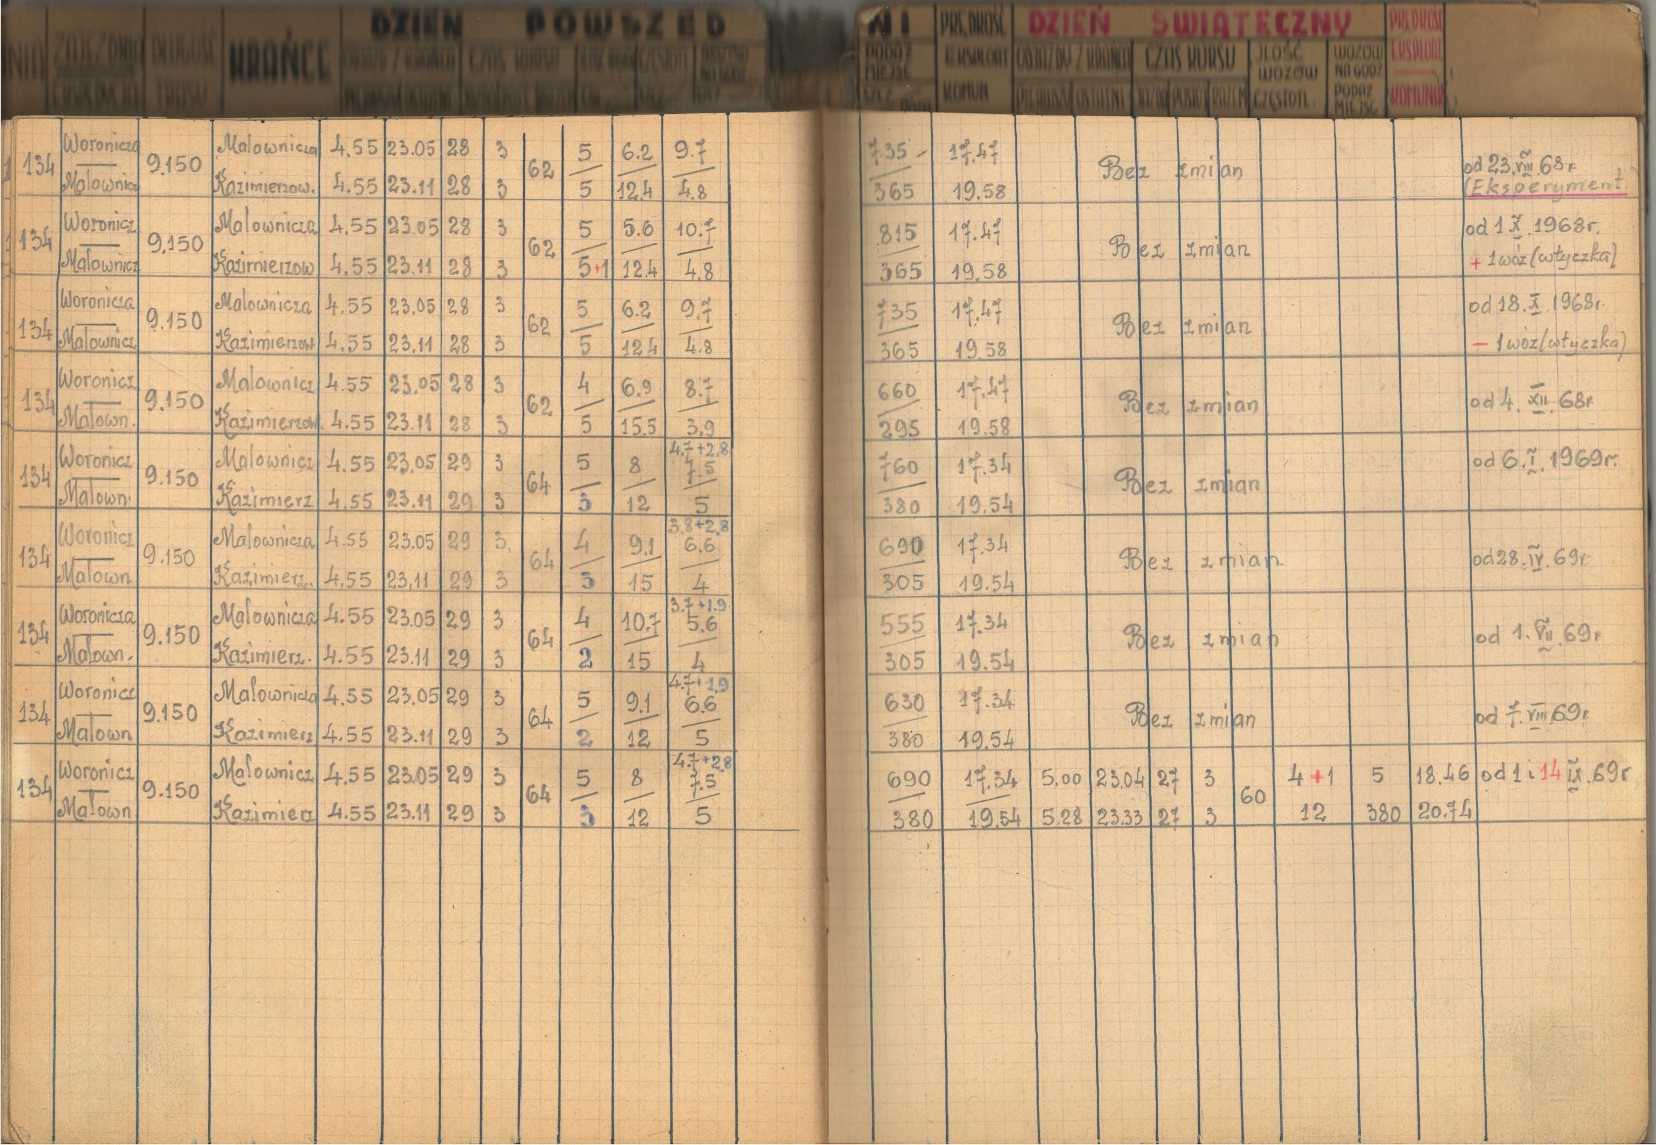 DZIEŃ POWSZED NI DZIEŃ ŚWIĄTECZNY
KRAŃCE
134 Woronicza Malownicz 9.150 Malownicza 4.55 23.05 28 3 62 5 6.2 9.7 735 17.47 Bez zmian od 23.VIII.68r.
Kazimierzow. 4.55 23.11 28 3 5 12.4 4.8 365 19.58 (Eksperyment)
134 Woronicz Malownicz 9.150 Malownicza 4.55 23.05 28 3 62 5 5.6 10.7 815 17.47 Bez zmian od 1 X. 1968r.
Kazimierzow 4.55 23.11 28 3 5+1 12.4 4.8 365 19.58 + 1 wóz (wtyczka)
134 Woronicza Malownicz 9.150 Malownicza 4.55 23.05 28 3 62 5 6.2 9.7 735 17.47 Bez zmian od 18.X.1968r.
Kazimierzow 4.55 23.11 28 3 5 12.4 4.8 365 19.58 - 1 wóz (wtyczka)
134 Woronicz Małown. 9.150 Malownicz 4.55 23.05 28 3 62 4 6.9 8.7 660 17.47 Bez zmian od 4. XII.68r
Kazimierzow. 4.55 23.11 28 3 5 15.5 3.9 295 19.58
134 Woronicz Małown. 9.150 Malownicz 4.55 23.05 29 3 64 5 8 4.7+2.8 7.5 760 17.34 Bez zmian od 6.I.1969r.
Kazimierz 4.55 23.11 29 3 3 12 5 380 19.54
134 Woronicz Małown 9.150 Malownicza 4.55 23.05 29 3. 64 4 9.1 3.8+2.8 6.6 690 17.34 Bez zmian. od 28.IV.69r
Kazimierz. 4.55 23.11 29 3 3 15 4 305 19.54
134 Woronicza Małown. 9.150 Malownicza 4.55 23.05 29 3 64 4 10.7 3.7+1.9 5.6 555 17.34 Bez zmian od 1. VII.69r
Kazimierz. 4.55 23.11 29 3 2 15 4 305 19.54
134 Woronicz Małown 9.150 Malownicza 4.55 23.05 29 3 64 5 9.1 4.7+1.9 6.6 630 17.34 Bez zmian od 7.VIII.69r
Kazimierz 4.55 23.11 29 3 2 12 5 380 19.54
134 Woronicz Małown 9.150 Malownicz 4.55 23.05 29 3 64 5 8 4.7+2.8 7.5 690 17.34 5.00 23.04 27 3 60 4+1 5 18.46 od 1 i 14 IX.69r
Kazimierz 4.55 23.11 29 3 3 12 5 380 19.54 5.28 23.33 27 3 12 380 20.74